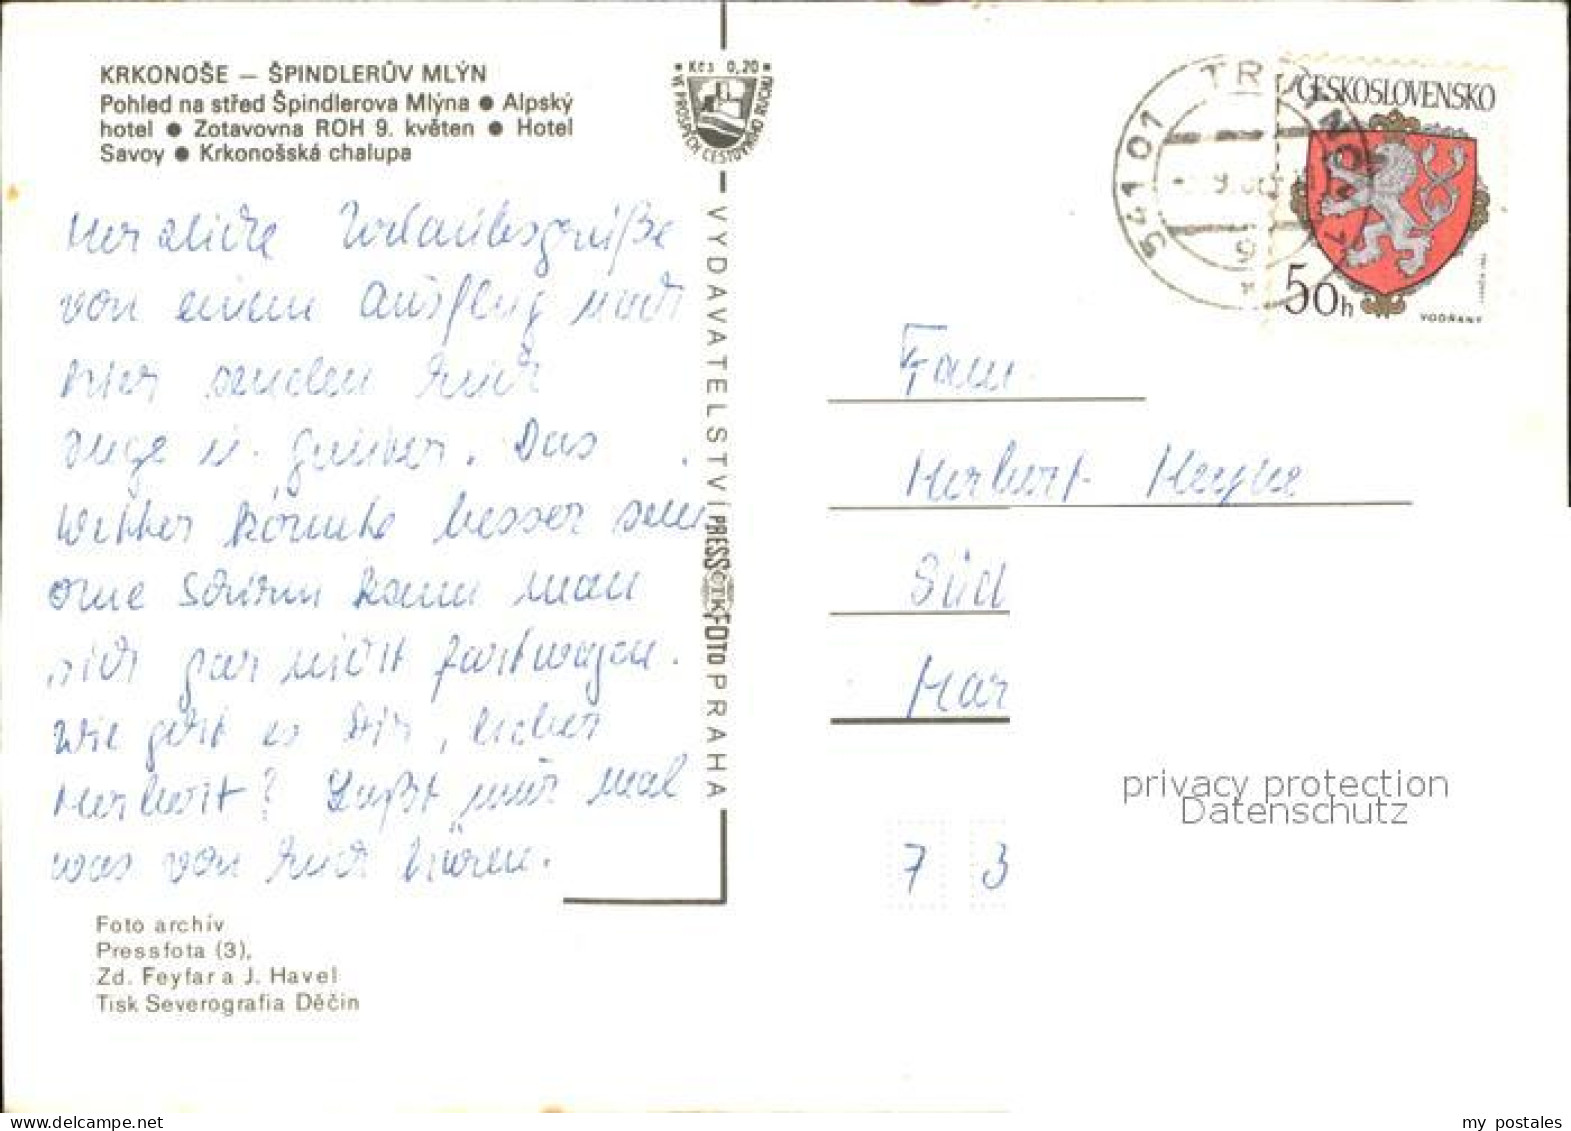 KRKONOŠE — ŠPINDLERŮV MLÝN
Pohled na střed Špindlerova Mlýna ● Alpský
hotel ● Zotavovna ROH 9. květen ● Hotel
Savoy ● Krkonošská chalupa
Kčs 0,20
VE PROSPĚCH CESTOVNÍHO RUCHU
54101 TRUTNOV 1
9
ČESKOSLOVENSKO
50h
VODŇANY
Herzliche Urlaubsgrüße
von einem Ausflug nach
hier senden Euch
Inge u. Günter. Das
Wetter könnte besser sein
ohne Schirm kann man
sich gar nicht fortwagen.
Wie geht es Dir, lieber
Herbert? Laßt mir mal
was von Euch hören.
VYDAVATELSTVÍ PRESSFOTO PRAHA
ČTK
Fam.
Herbert Heyne
Süd
Mar
7 3
privacy protection
Datenschutz
Foto archív
Pressfota (3),
Zd. Feyfar a J. Havel
Tisk Severografia Děčín
my_postales